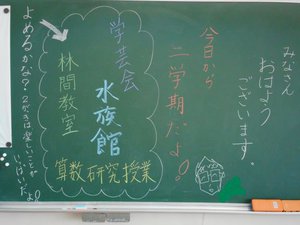 みなさん
おはよう
ございます。
今日から
二学期だよ!
学芸会
水族館
林間教室
算数研究授業
よめるかな?
2がっきは楽しいことが
いっぱいだよ!